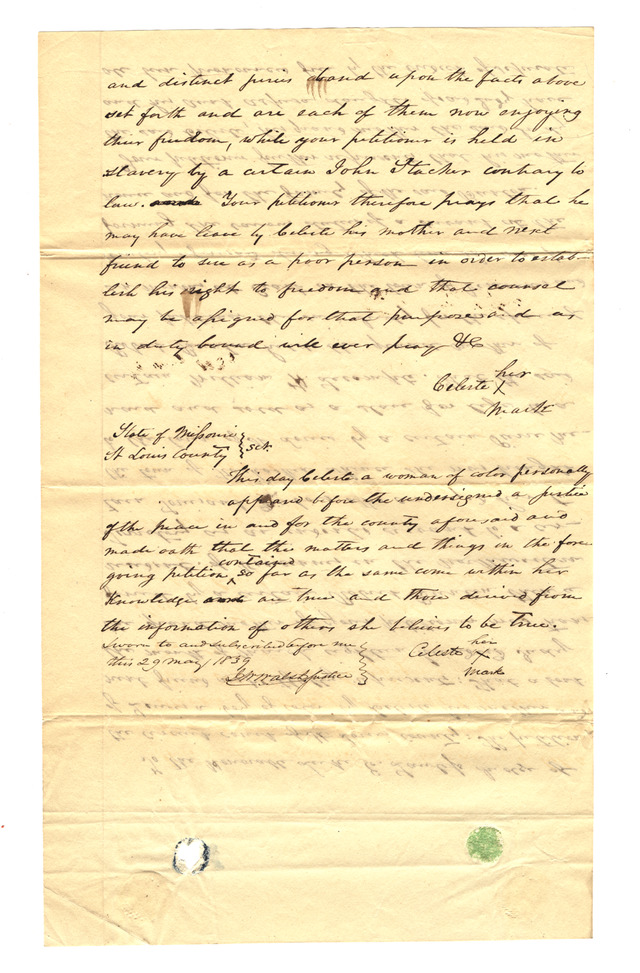 and distinct juries and upon the facts above
set forth and are each of them now enjoying
their freedom, while your petitioner is held in
slavery by a certain John Stacker contrary to
law. Your petitioner therefore prays that he
may have leave by Celeste his mother and next
friend to sue as a poor person in order to estab-
lish his right to freedom and that counsel
may be assigned for that purpose and as
in duty bound will ever pray &c
Celeste her
X
mark
State of Missouri
St Louis County } sct.
This day Celeste a woman of color personally
appeared before the undersigned a justice
of the peace in and for the county aforesaid and
made oath that the matters and things in the fore
contained
going petition ^ so far as the same come within her
Knowledge are true and those derived from
the information of others she believes to be true.
Sworn to and subscribed before me
this 29 May 1839
Justice
Celeste her
X
mark